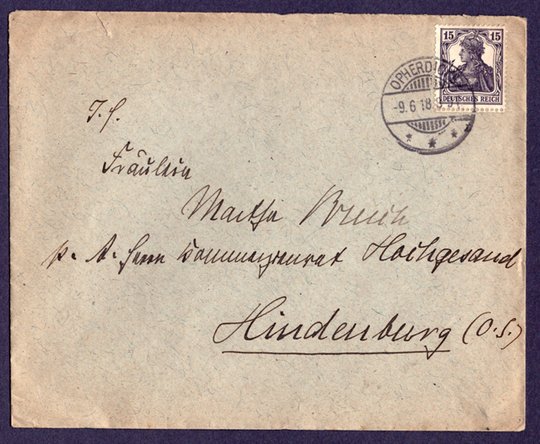 15 15
DEUTSCHES REICH
OPHERDICKE
-9.6.18.
Fräulein
Martha Bruch
p. A. Herrn Kommerzienrat Hochgesand
Hindenburg (O.S.)